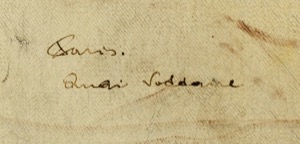 Paris.
Quai Voltaire